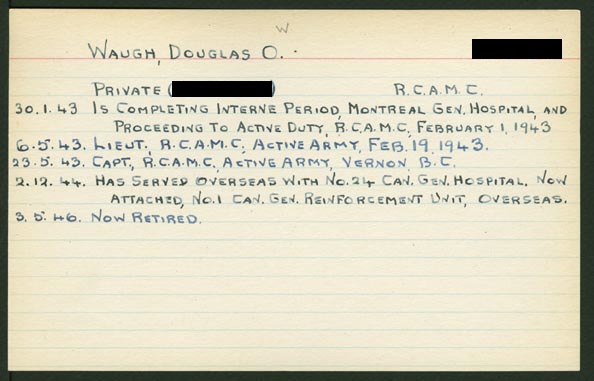 W
WAUGH, DOUGLAS O.
PRIVATE ( ) R.C.A.M.C.
30.1.43 IS COMPLETING INTERNE PERIOD, MONTREAL GEN. HOSPITAL, AND
PROCEEDING TO ACTIVE DUTY, R.C.A.M.C, FEBRUARY 1, 1943
6.5.43. LIEUT., R.C.A.M.C, ACTIVE ARMY, FEB. 19, 1943.
23.5.43. CAPT, R.C.A.M.C, ACTIVE ARMY, VERNON, B.C.
2.12.44. HAS SERVED OVERSEAS WITH NO. 24 CAN. GEN. HOSPITAL. NOW
ATTACHED, NO. 1 CAN. GEN. REINFORCEMENT UNIT, OVERSEAS.
3.5.46. NOW RETIRED.